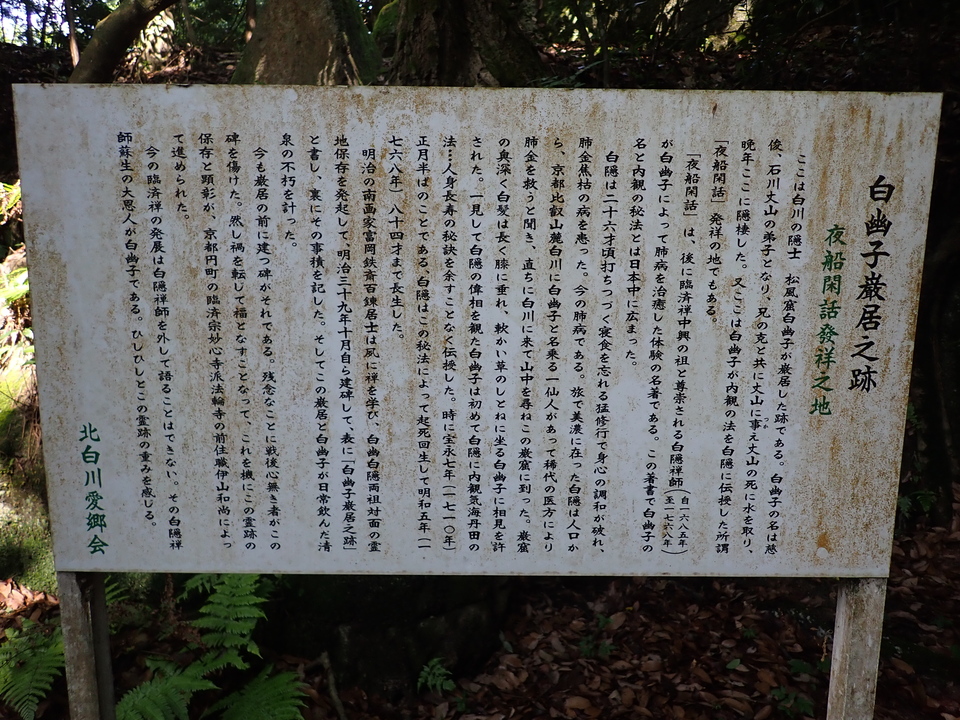 白幽子巖居之跡
夜船閑話發祥之地
ここは白川の隠士　松風窟白幽子が巌居した跡である。白幽子の名は慈
俊、石川丈山の弟子となり、兄の克と共に丈山に事え丈山の死に水を取り、
つか
晩年ここに隠棲した。又ここは白幽子が内観の法を白隠に伝授した所謂
「夜船閑話」発祥の地でもある。
「夜船閑話」は、後に臨済禅中興の祖と尊崇される白隠禅師(自一六八五年至一七六八年)
が白幽子によって肺病を治癒した体験の名著である。この著書で白幽子の
名と内観の秘法とは日本中に広まった。
白隠は二十六才頃打ちつづく寝食を忘れる猛修行で身心の調和が破れ、
肺金焦枯の病を患った。今の肺病である。旅で美濃に在った白隠は人口か
ら、京都比叡山麓白川に白幽子と名乗る一仙人があって稀代の医方により
肺金を救うと聞き、直ちに白川に来て山中を尋ねこの巌窟に到った。巌窟
の奥深く白髪は長く膝に垂れ、軟かい草のしとねに坐る白幽子に相見を許
された。一見して白隠の偉相を観た白幽子は初めて白隠に内観気海丹田の
法…人身長寿の秘訣を余すことなく伝授した。時に宝永七年(一七一〇年)
正月半ばのことである、白隠はこの秘法によって起死回生して明和五年(一
七六八年)八十四才まで長生した。
明治の南画家富岡鉄斎百錬居士は夙に禅を学び、白幽白隠両祖対面の霊
地保存を発起して、明治三十九年十月自ら建碑して、表に「白幽子巌居之跡」
と書し、裏にその事積を記した。そしてこの巌居と白幽子が日常飲んだ清
泉の不朽を計った。
今も巌居の前に建つ碑がそれである。残念なことに戦後心無き者がこの
碑を傷けた。然し禍を転じて福となすことなって、これを機にこの霊跡の
保存と顕彰が、京都円町の臨済宗妙心寺派法輪寺の前住職伊山和尚によっ
て進められた。
今の臨済禅の発展は白隠禅師を外して語ることはできない。その白隠禅
師蘇生の大恩人が白幽子である。ひしひしとこの霊跡の重みを感じる。
北白川愛郷会